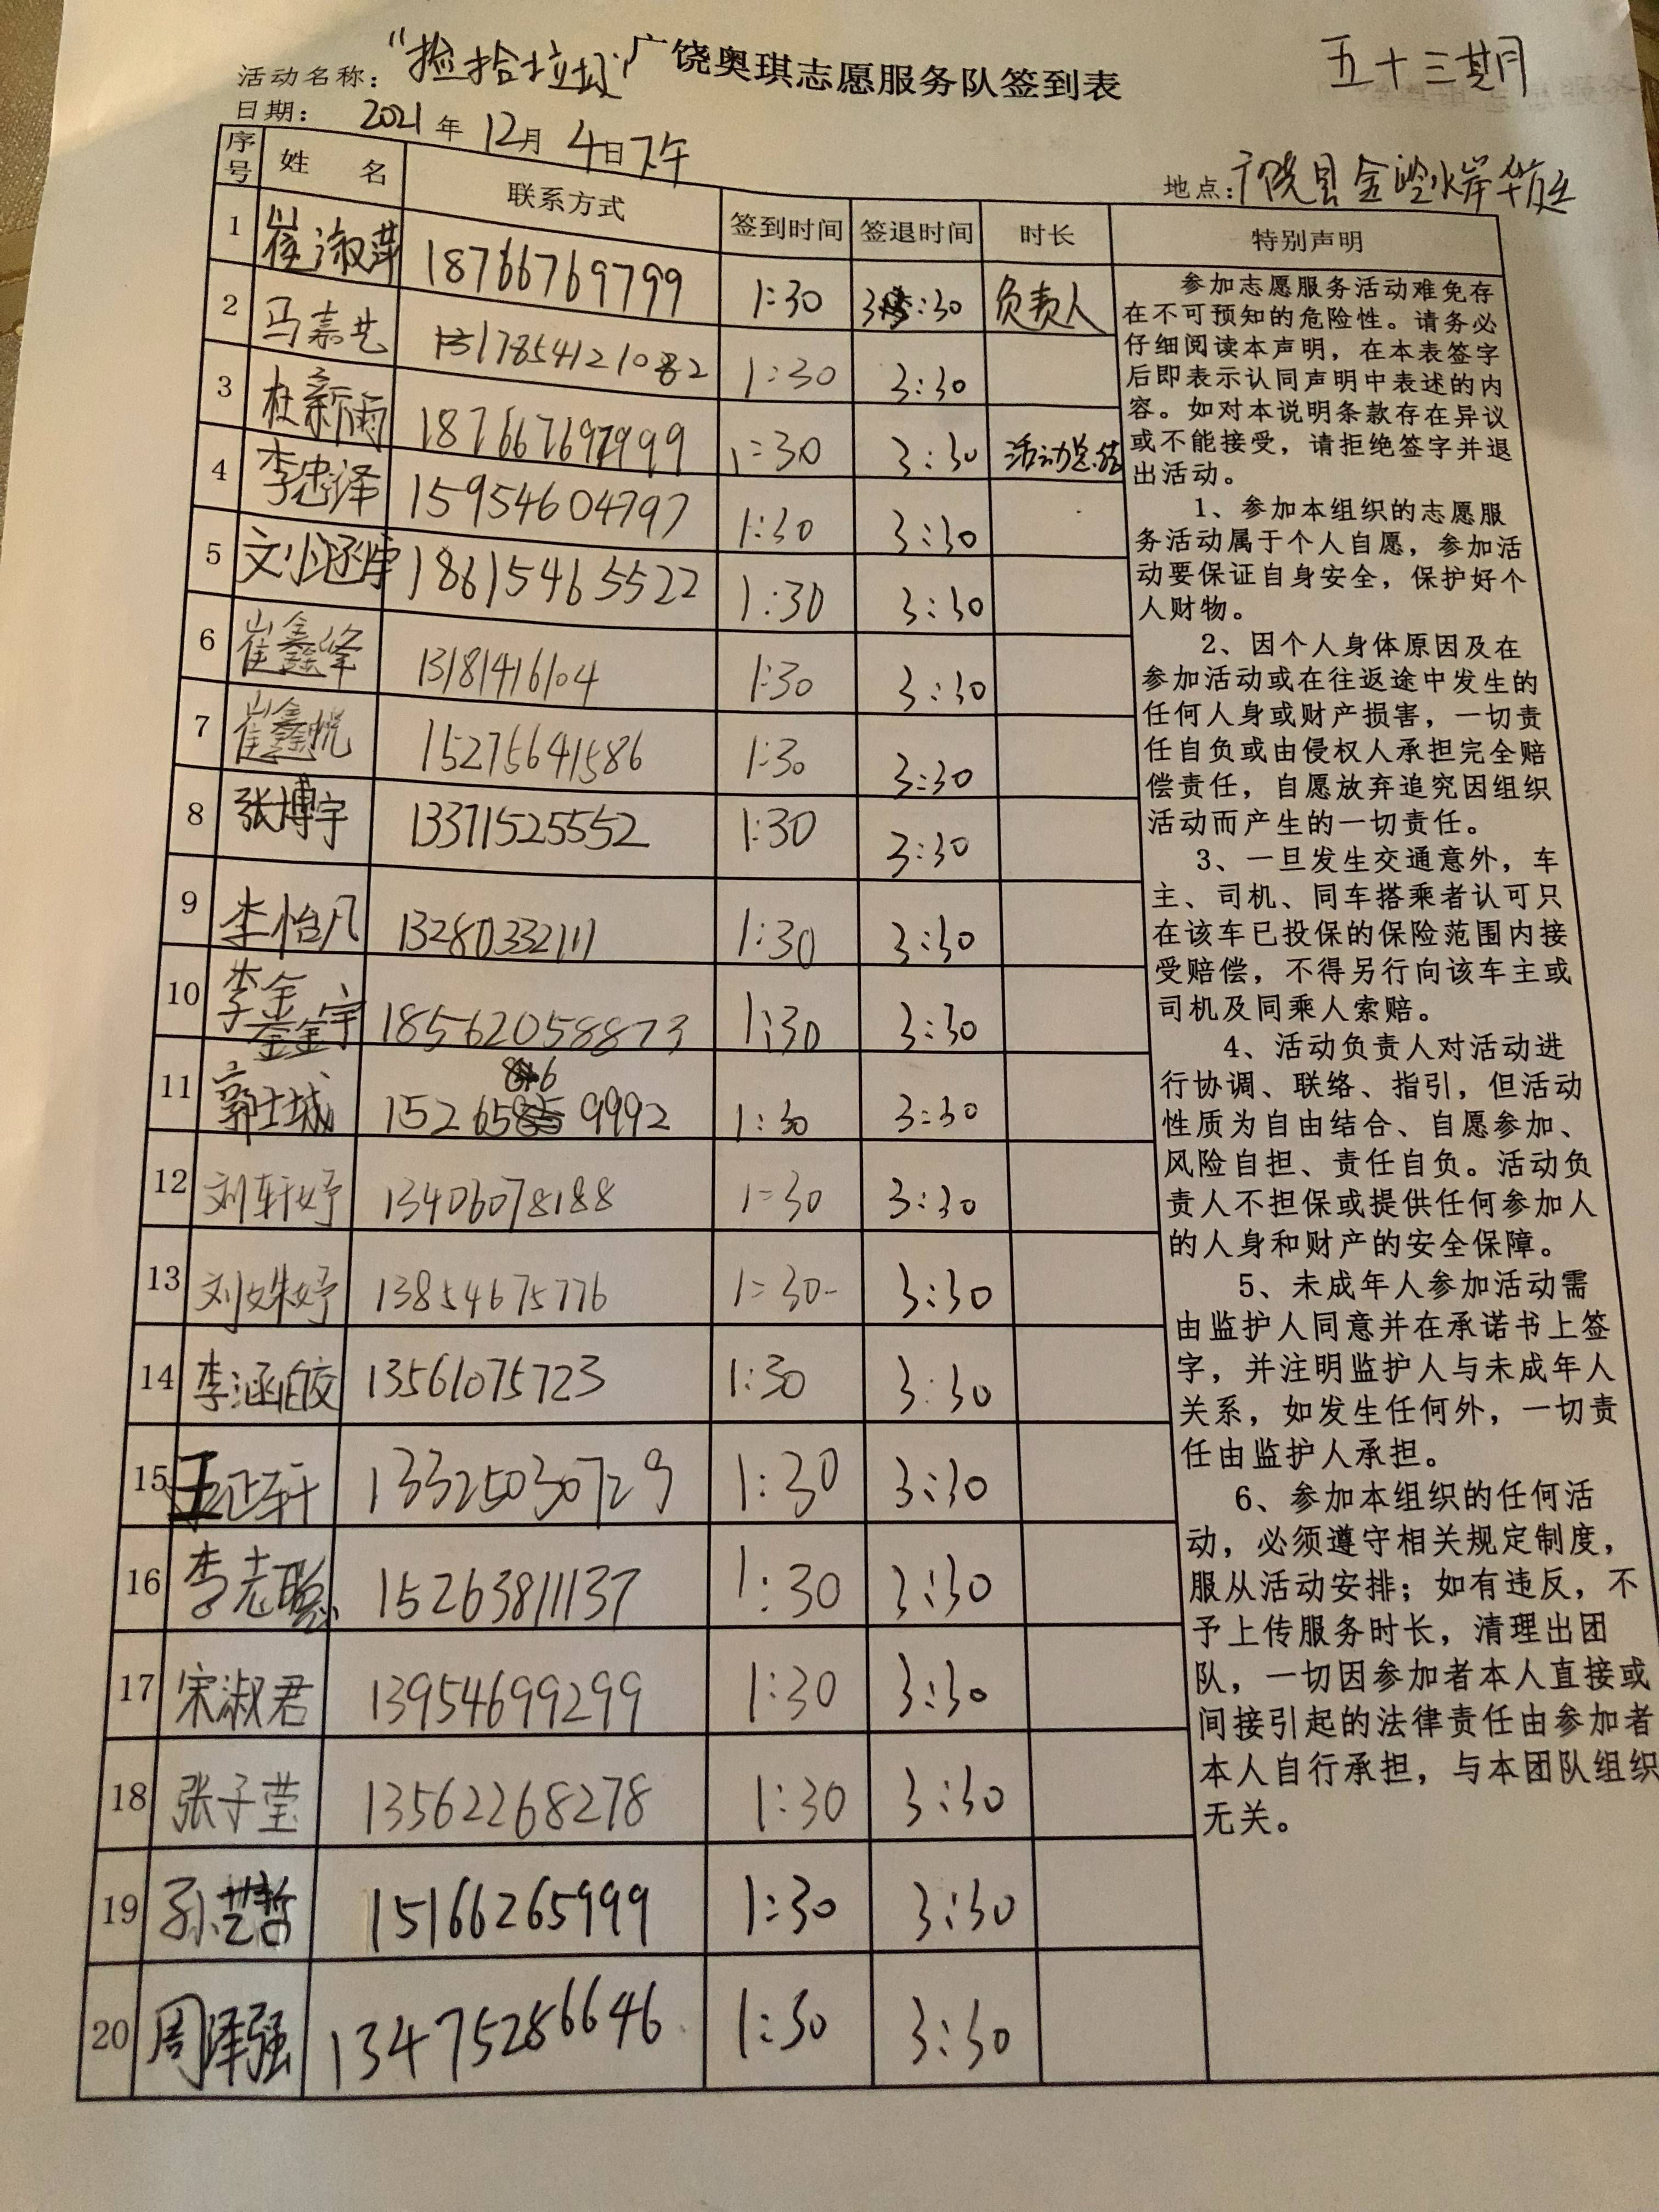 广饶奥琪志愿服务队签到表
五十三期
活动名称：“捡拾垃圾”
日期： 2021年12月4日下午
地点：广饶县金岭水岸华庭
序号 姓 名 联系方式 签到时间 签退时间 时长 特别声明
1 崔淑萍 18766769799 1:30 3:30 负责人
2 马嘉艺 17854121082 1:30 3:30
3 杜新雨 1:30 3:30 活动总结
4 李忠泽 15954604797 1:30 3:30
5 刘涵宇 18615465522 1:30 3:30
6 崔鑫峰 13181416104 1:30 3:30
7 崔鑫悦 15275641586 1:30 3:30
8 张博宇 13371525552 1:30 3:30
9 李怡凡 13280332111 1:30 3:30
10 李金鑫宇 18562058873 1:30 3:30
11 郭士城 1526 9992 1:30 3:30
12 刘轩妤 13406078188 1:30 3:30
13 刘姝妤 13854675776 1:30 3:30
14 李涵皎 13561075723 1:30 3:30
15 王正轩 13325030729 1:30 3:30
16 李志聪 15263811137 1:30 3:30
17 宋淑君 13954699299 1:30 3:30
18 张子莹 13562268278 1:30 3:30
19 孙艺哲 15166265999 1:30 3:30
20 周泽强 13475286646 1:30 3:30
参加志愿服务活动难免存
在不可预知的危险性。请务必
仔细阅读本声明，在本表签字
后即表示认同声明中表述的内
容。如对本说明条款存在异议
或不能接受，请拒绝签字并退
出活动。
1、参加本组织的志愿服
务活动属于个人自愿，参加活
动要保证自身安全，保护好个
人财物。
2、因个人身体原因及在
参加活动或在往返途中发生的
任何人身或财产损害，一切责
任自负或由侵权人承担完全赔
偿责任，自愿放弃追究因组织
活动而产生的一切责任。
3、一旦发生交通意外，车
主、司机、同车搭乘者认可只
在该车已投保的保险范围内接
受赔偿，不得另行向该车主或
司机及同乘人索赔。
4、活动负责人对活动进
行协调、联络、指引，但活动
性质为自由结合、自愿参加、
风险自担、责任自负。活动负
责人不担保或提供任何参加人
的人身和财产的安全保障。
5、未成年人参加活动需
由监护人同意并在承诺书上签
字，并注明监护人与未成年人
关系，如发生任何外，一切责
任由监护人承担。
6、参加本组织的任何活
动，必须遵守相关规定制度，
服从活动安排；如有违反，不
予上传服务时长，清理出团
队，一切因参加者本人直接或
间接引起的法律责任由参加者
本人自行承担，与本团队组织
无关。